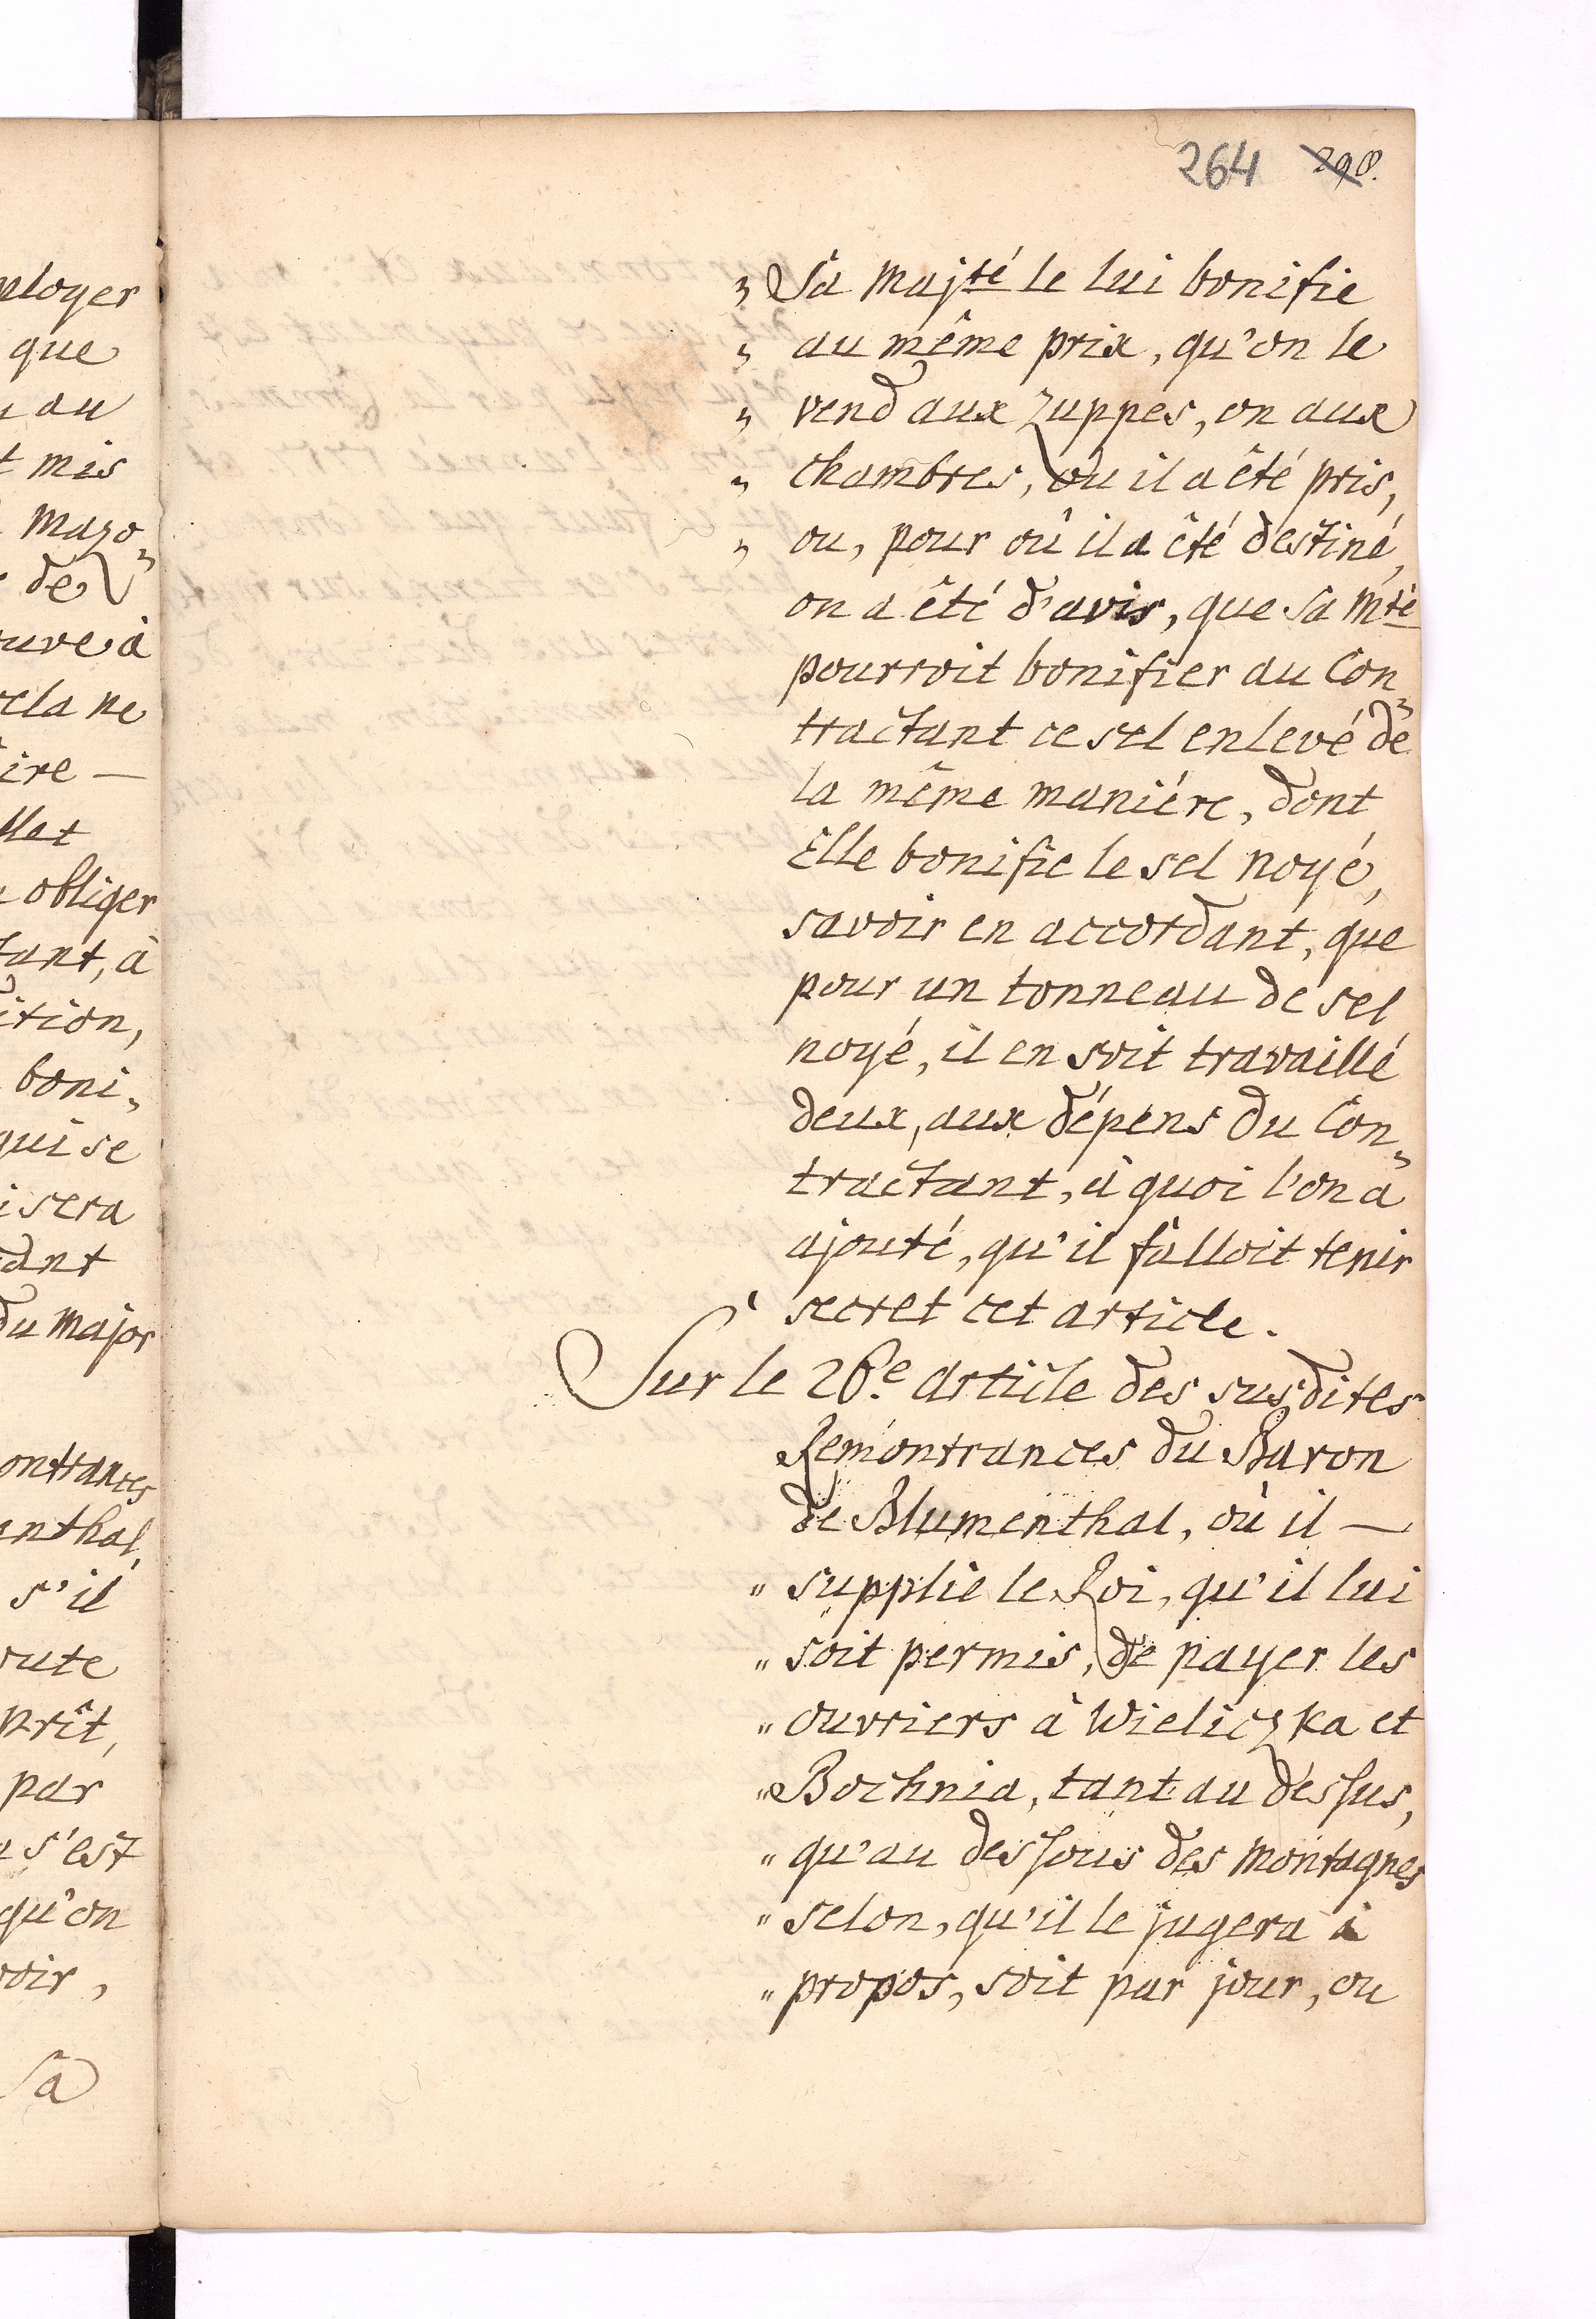 264 298.
„ Sa Majté le lui bonifie
„ au même prix, qu'on le
„ vend aux Zuppes, on aux
„ chambres, ou il a êté pris,
„ ou, pour où il a êté destiné,
on a êté d'avis, que Sa Mté
pourroit bonifier au Con„
tractant ce sel enlevé de
la même maniére, dont
Elle bonifie le sel noyé,
savoir en accordant, que
pour un tonneau de sel
noyé, il en soit travaillé
deux, aux dépens du Con„
tractant, à quoi l'on a
ajouté, qu'il falloit tenir
secret cet article.
Sur le 26e. article des susdites
Remontrances du Baron
de Blumenthal, où il —
„ supplie le Roi, qu'il lui
„ soit permis, de payer les
„ ouvriers à Wieliczka et
„ Bochnia, tant au dessus,
„ qu'au dessous des montagnes
„ selon, qu'il le jugera à
„ propos, soit par jour, ou
ployer
que
au
mis
Mazo„
de
uve à
cela ne
ire —
llet
obliger
tant, à
ition,
boni„
qui se
i sera
dant
du Major
ontrances
enthal,
s'il
oute
prêt,
par
s'est
qu'on
voir,
Sa